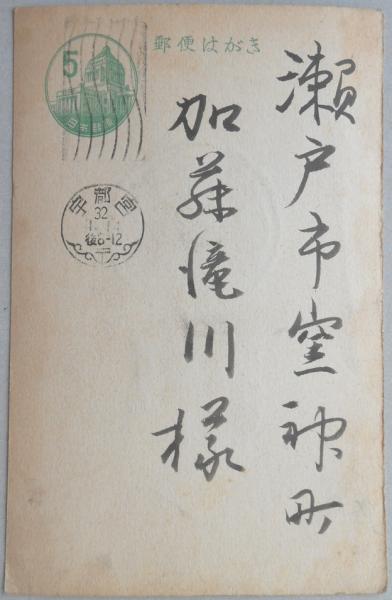 郵便はがき
5
日本郵便
宇都宮
32
後6-12
瀬戸市窯神町
加藤滝川様